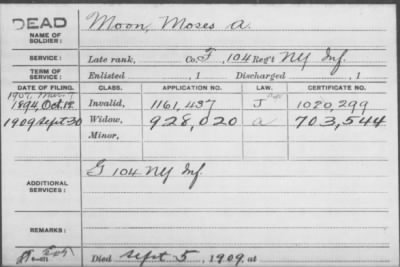 DEAD
NAME OF SOLDIER: Moon, Moses A.
SERVICE: Late rank, Co. F, 104 Reg't NY Inf.
TERM OF SERVICE: Enlisted , 1 Discharged , 1
DATE OF FILING. CLASS. APPLICATION NO. LAW. CERTIFICATE NO.
1894, Oct. 12 Invalid, 1161,437 J 1020,299
1909 Sept 30 Widow, 928,020 a 703,544
Minor,
ADDITIONAL SERVICES: G 104 NY Inf.
REMARKS:
Died Sept 5, 1909, at